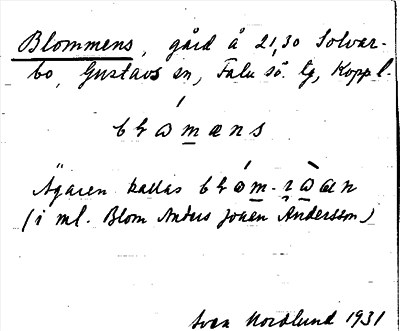 Blommens, gård å 21,30 Solvar-
bo, Gustavs sn, Falu sö. tg, Koppl.
Ägaren kallas
(i ml. Blom Anders Andersson)
Sven Nordlund 1931